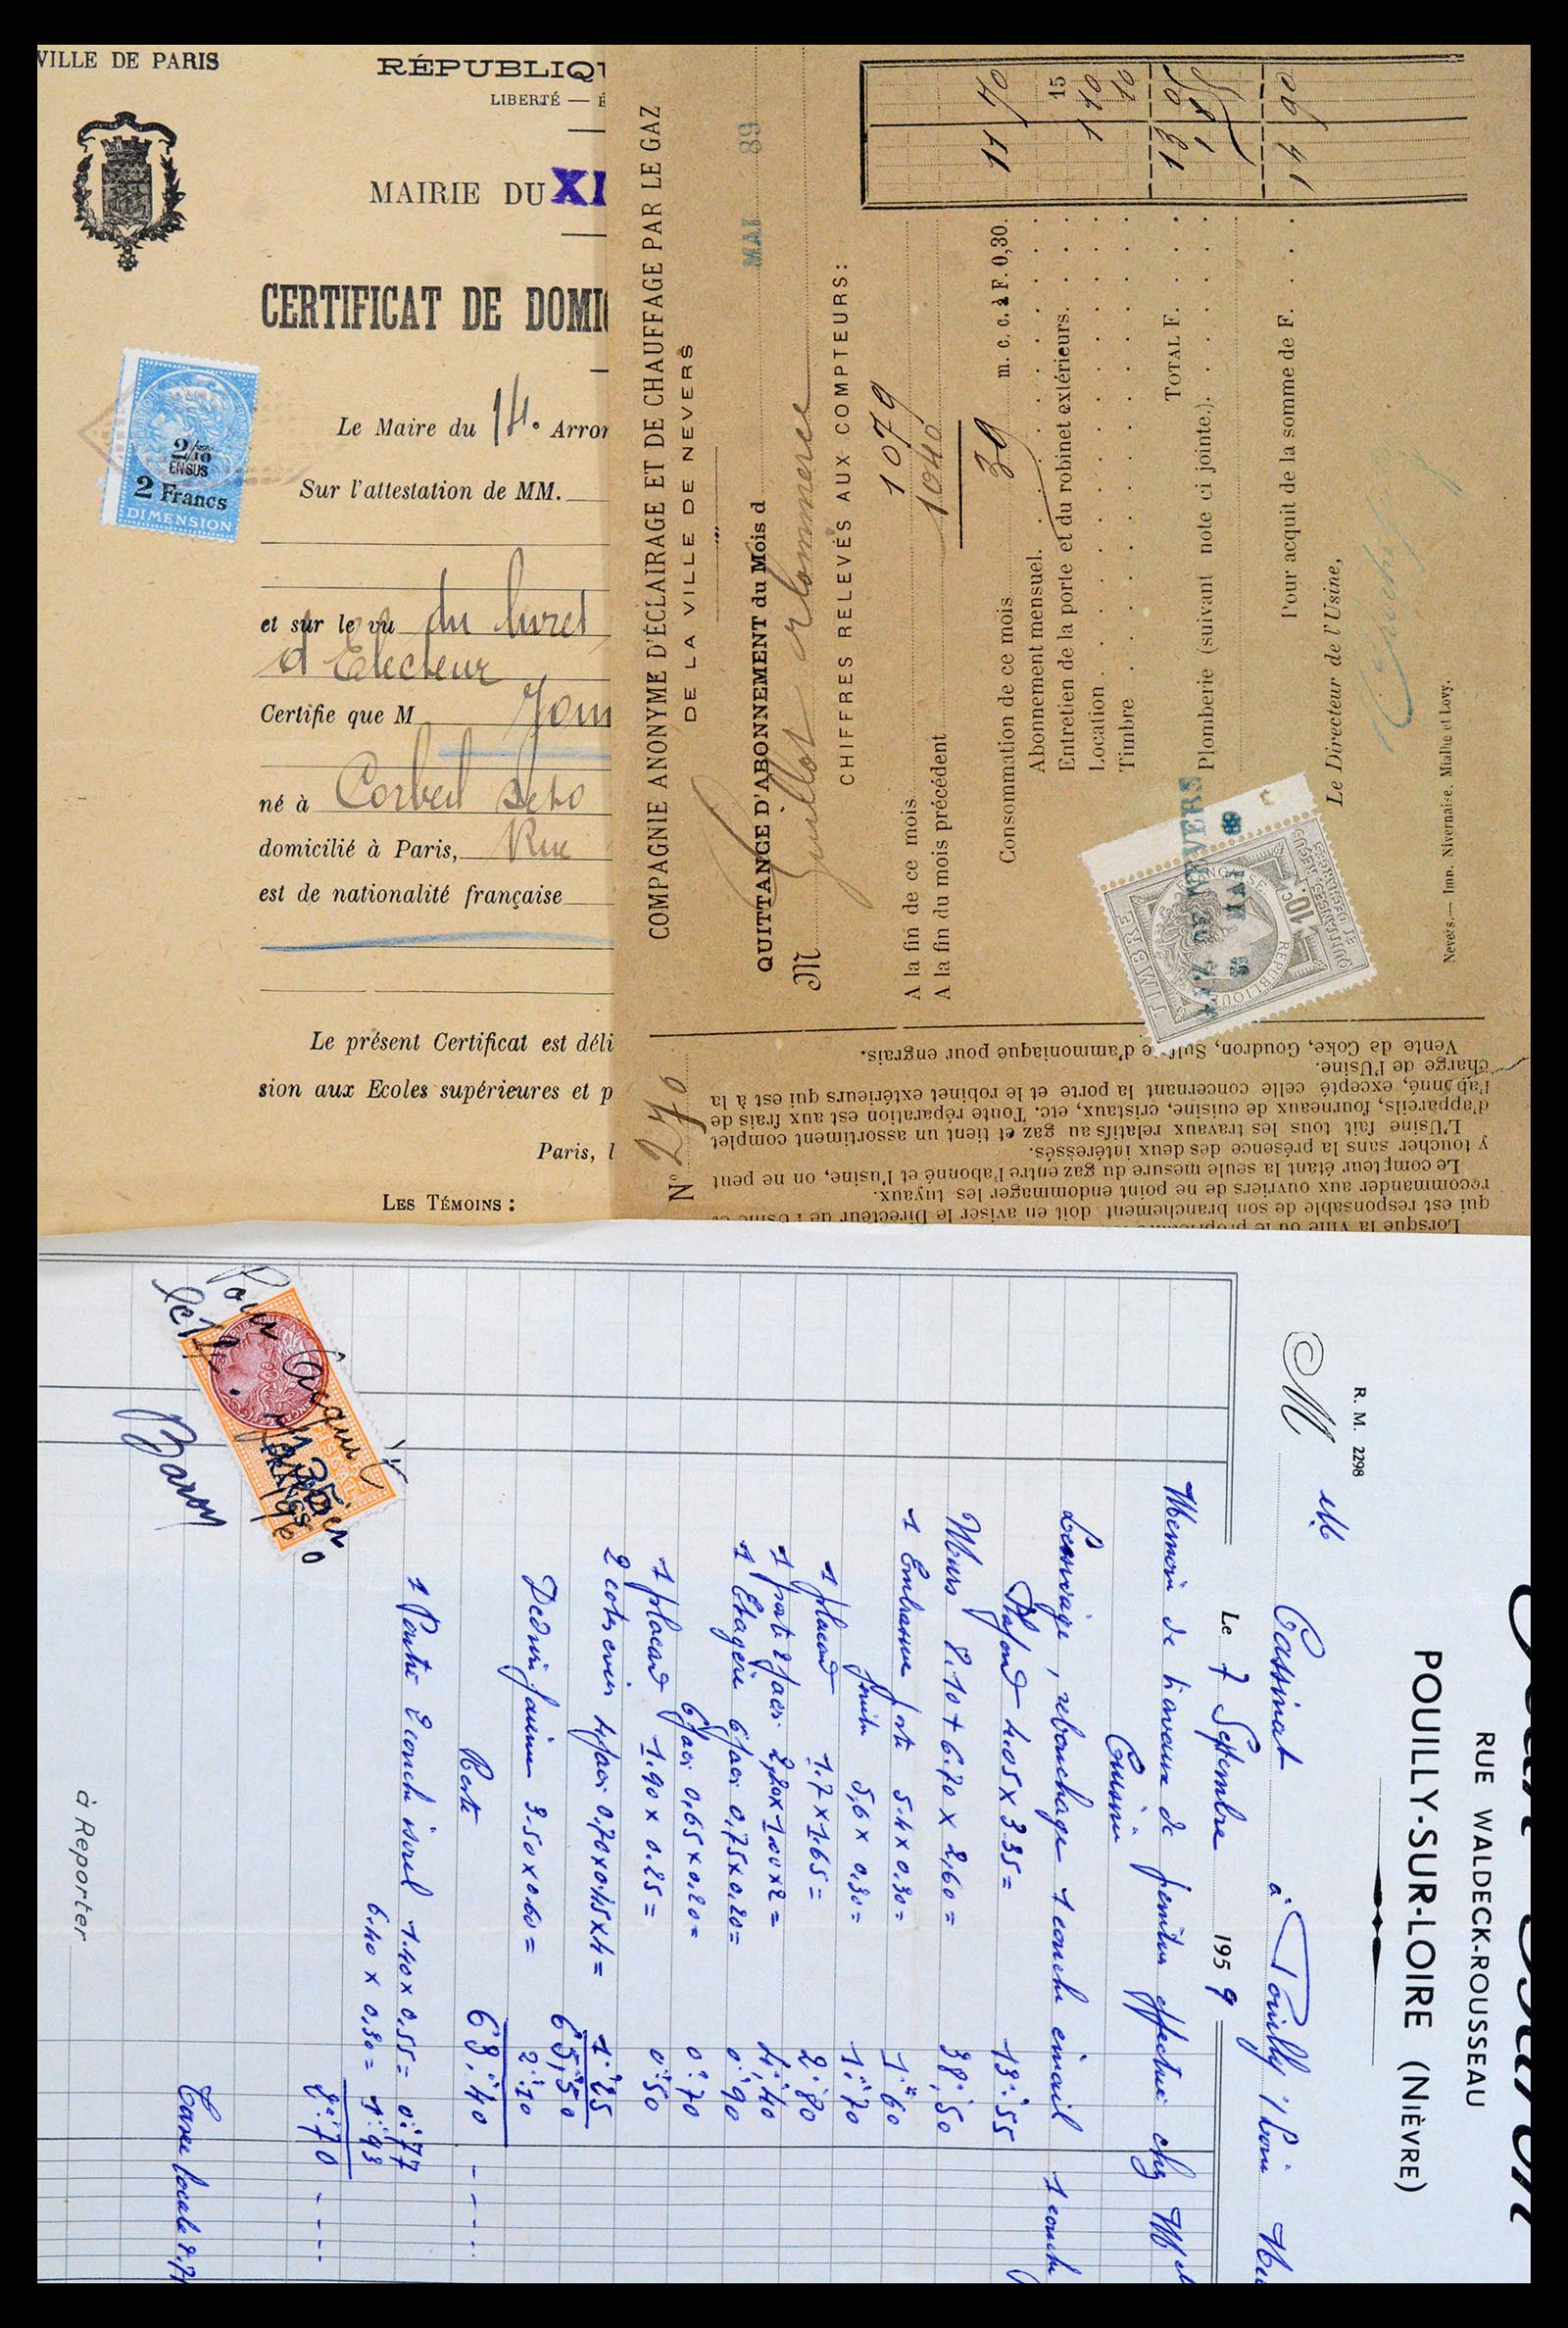 VILLE DE PARIS
RÉPUBLIQ
LIBERTÉ — É
MAIRIE DU XI
CERTIFICAT DE DOMI
2/10
EN SUS
2 Francs
DIMENSION
Le Maire du 14. Arron
Sur l'attestation de MM.
et sur le vu du livret
d'Electeur
Certifie que M
né à Corbeil
domicilié à Paris, Rue
est de nationalité française
Le présent Certificat est déli
sion aux Ecoles supérieures et p
Paris, l
LES TÉMOINS :
COMPAGNIE ANONYME D'ÉCLAIRAGE ET DE CHAUFFAGE PAR LE GAZ
DE LA VILLE DE NEVERS
QUITTANCE D'ABONNEMENT du Mois d MAI 89
M Guillot
CHIFFRES RELEVÉS AUX COMPTEURS:
A la fin de ce mois 1079
A la fin du mois précédent 1040
Consommation de ce mois 39 m. c. à F. 0,30. 11 70
Abonnement mensuel.
Entretien de la porte et du robinet extérieurs. 15
Location 1 10
Timbre 10
TOTAL F. 13 05
Plomberie (suivant note ci jointe.) 1 85
Pour acquit de la somme de F. 14 90
Le Directeur de l'Usine,
Nevers.— Imp. Nivernaise, Mialhe et Lovy.
TIMBRE
RÉPUBLIQUE FRANÇAISE
10c.
QUITTANCES, REÇUS
ET DÉCHARGES
GAZ DE NEVERS
MAI 89
N° 270
Lorsque la Ville ou le propriétaire
qui est responsable de son branchement doit en aviser le Directeur de l'Usine et
recommander aux ouvriers de ne point endommager les tuyaux.
Le compteur étant la seule mesure du gaz entre l'abonné et l'usine, on ne peut
y toucher sans la présence des deux intéressés.
L'Usine fait tous les travaux relatifs au gaz et tient un assortiment complet
d'appareils, fourneaux de cuisine, cristaux, etc. Toute réparation est aux frais de
l'abonné, excepté celle concernant la porte et le robinet extérieurs qui est à la
charge de l'Usine.
Vente de Coke, Goudron, Sulfate d'ammoniaque pour engrais.
Baron
RUE WALDECK-ROUSSEAU
POUILLY-SUR-LOIRE (NIÈVRE)
R. M. 2298
M Cassinat à Pouilly s/Loire
Le 7 Septembre 1959
Memoire de travaux de peinture effectué chez M
Cuisine
Lessivage, rebouchage 1 couche email 1 couche
Plafond 4.05 x 3.35 = 13.55
Murs 8.10 + 6.70 x 2,60 = 38,50
1 Embrasure porte 5.4 x 0,30 = 1.60
fenêtre 5,6 x 0,30 = 1.70
1 placard 1.7 x 1.65 = 2.80
1 porte 2 faces 2,20 x 1.00 x 2 = 4,40
1 Etagère 6 faces 0,75 x 0,20 = 0.90
6 faces 0,65 x 0,20 = 0.70
1 placard 1.90 x 0.25 = 0.50
2 cotes evier 4 faces 0,70 x 0,45 x 4 = 1.25
65,50
Deduire faience 3.50 x 0.60 = 2.10
Reste 63.40
1 Poutre 2 couches 1.40 x 0.55 = 0.77
6.40 x 0,30 = 1.93
2.70
Taxe locale
FISCAL
FRANCS
Pour acquit
Baron
à Reporter